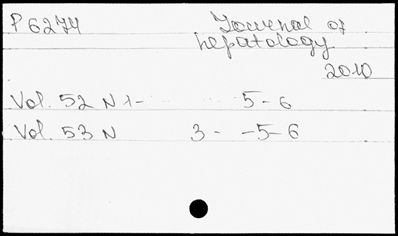 P 6274 Journal of
hepatology
2010
Vol. 52 N 1- 5 - 6
Vol. 53 N 3 - -5- 6